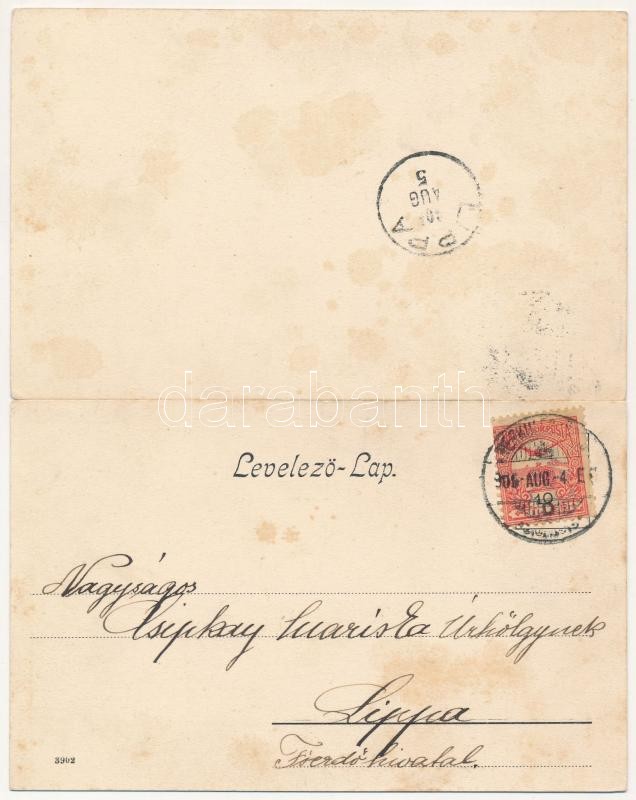 LIPPA
AUG
5
darabanth
Levelező-Lap.
905 AUG.-4. E
10
Nagyságos
Csipkay Mariska Úrhölgynek
Lippa
Főerdőhivatal.
3902